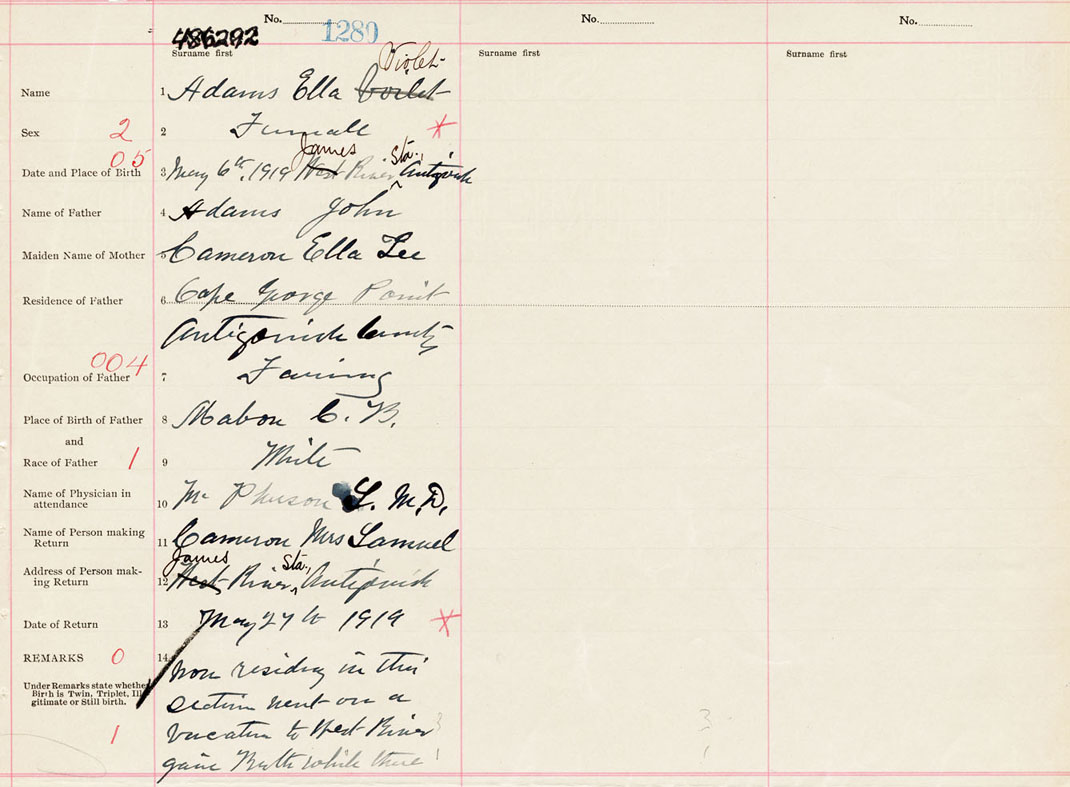 No. 1280
No.
No.
486292
Surname first
Surname first
Surname first
Violet
Name 1 Adams Ella Voilet
Sex 2 2 Female
James Sta.
05
Date and Place of Birth 3 May 6th, 1919 West River Antigonish
Name of Father 4 Adams John
Maiden Name of Mother 5 Cameron Ella Lee
Residence of Father 6 Cape George Point
Antigonish County
004
Occupation of Father 7 Farming
Place of Birth of Father 8 Mabou C. B.
and
Race of Father 1 9 White
Name of Physician in
attendance 10 Mc Pherson L. M.D.
Name of Person making
Return 11 Cameron Mrs Samuel
James Sta.,
Address of Person mak-
ing Return 12 West River, Antigonish
Date of Return 13 May 27th 1919
REMARKS 0 14
Under Remarks state whether
Birth is Twin, Triplet, Ill
gitimate or Still birth.
non residing in this
section went on a
vacation to West River 3
1
gave Birth while there 1
3
1